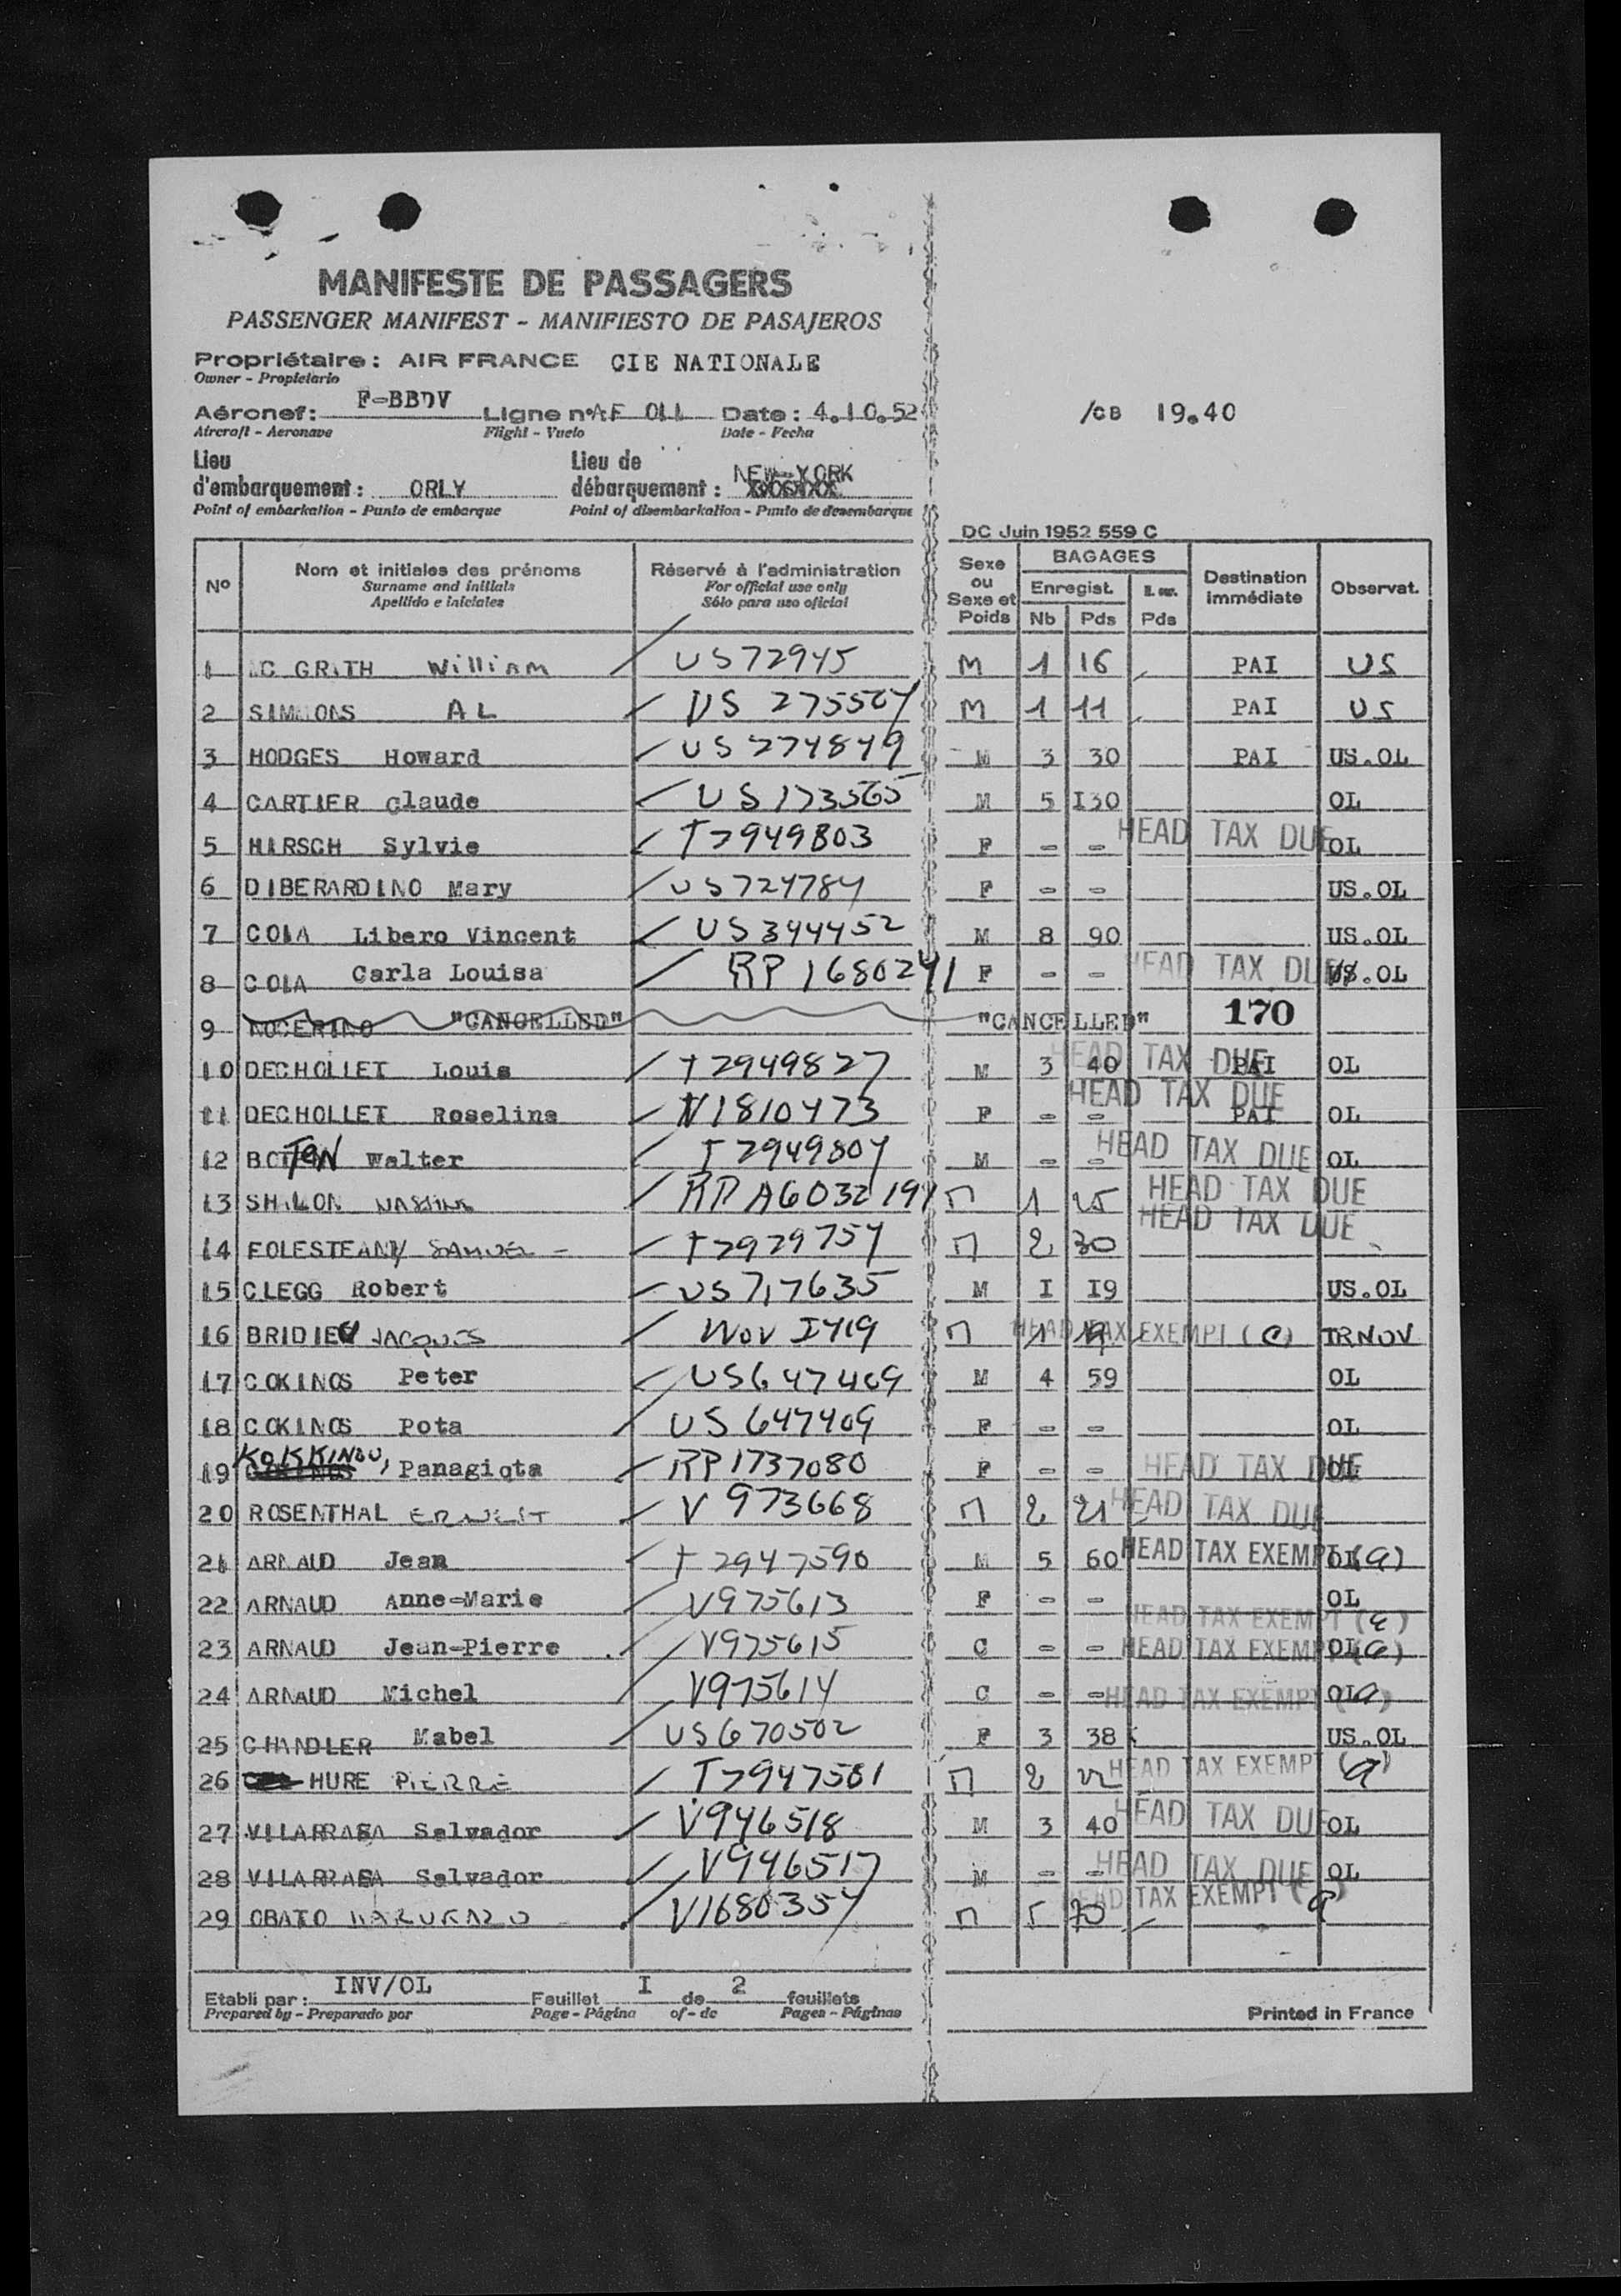 MANIFESTE DE PASSAGERS
PASSENGER MANIFEST - MANIFIESTO DE PASAJEROS
Propriétaire : AIR FRANCE CIE NATIONALE
Owner - Propietario
Aéronef : F-BBDV Ligne n° AF 011 Date : 4.10.52 /CB 19.40
Aircraft - Aeronave Flight - Vuelo Date - Fecha
Lieu d'embarquement : ORLY Lieu de débarquement : NEW-YORK
Point of embarkation - Punto de embarque Point of disembarkation - Punto de desembarque
DC Juin 1952 559 C
N° Nom et initiales des prénoms Réservé à l'administration Sexe ou Sexe et Poids BAGAGES Destination immédiate Observat.
Surname and initials For official use only Enregist.
Apellido e iniciales Sólo para uso oficial Nb Pds Pds
1 MC GRATH William US72945 M 1 16 PAI US
2 SIMMONS AL US 275504 M 1 11 PAI US
3 HODGES Howard US274849 M 3 30 PAI US.OL
4 CARTIER Claude US173565 M 5 130 OL
5 HIRSCH Sylvie T2949803 F - - HEAD TAX DUE OL
6 DIBERARDINO Mary US724784 F - - US.OL
7 COLA Libero Vincent US344452 M 8 90 US.OL
8 COLA Carla Louisa RP 1680241 F - - HEAD TAX DUE US.OL
9 NOCERINO "CANCELLED" "CANCELLED" 170
10 DECHOLLET Louis T2949827 M 3 40 HEAD TAX DUE PAI OL
11 DECHOLLET Roseline V1810473 F - - HEAD TAX DUE PAI OL
12 BOTTON Walter T2949804 M - - HEAD TAX DUE OL
13 SHILON RP A6032194 M 1 25 HEAD TAX DUE
14 FOLESTEANY SAMUEL - T2929754 M 2 30 HEAD TAX DUE
15 CLEGG Robert US717635 M I I9 US.OL
16 BRIDIEU JACQUES Nov I419 M 1 HEAD TAX EXEMPT (C) TRNOV
17 COKINOS Peter US647409 M 4 59 OL
18 COKINOS Pota US647409 F - - OL
19 KOKKINOU, Panagiota RP1737080 F - - HEAD TAX DUE OL
20 ROSENTHAL ERNEST V 973668 M 2 21 HEAD TAX DUE
21 ARNAUD Jean T2947590 M 5 60 HEAD TAX EXEMPT (a) OL
22 ARNAUD Anne-Marie V975613 F - - HEAD TAX EXEMPT (a) OL
23 ARNAUD Jean-Pierre V975615 C - - HEAD TAX EXEMPT (a) OL
24 ARNAUD Michel V975614 C - - HEAD TAX EXEMPT (a) OL
25 CHANDLER Mabel US670502 F 3 38 US.OL
26 HURE PIERRE T2947581 M 2 22 HEAD TAX EXEMPT (a)
27 VILARRASA Salvador V946518 M 3 40 HEAD TAX DUE OL
28 VILARRASA Salvador V946517 M - - HEAD TAX DUE OL
29 OBATO V1680354 M 5 70 HEAD TAX EXEMPT (a)
Etabli par : INV/OL Feuillet I de 2 feuillets
Prepared by - Preparado por Page - Página of - de Pages - Páginas Printed in France